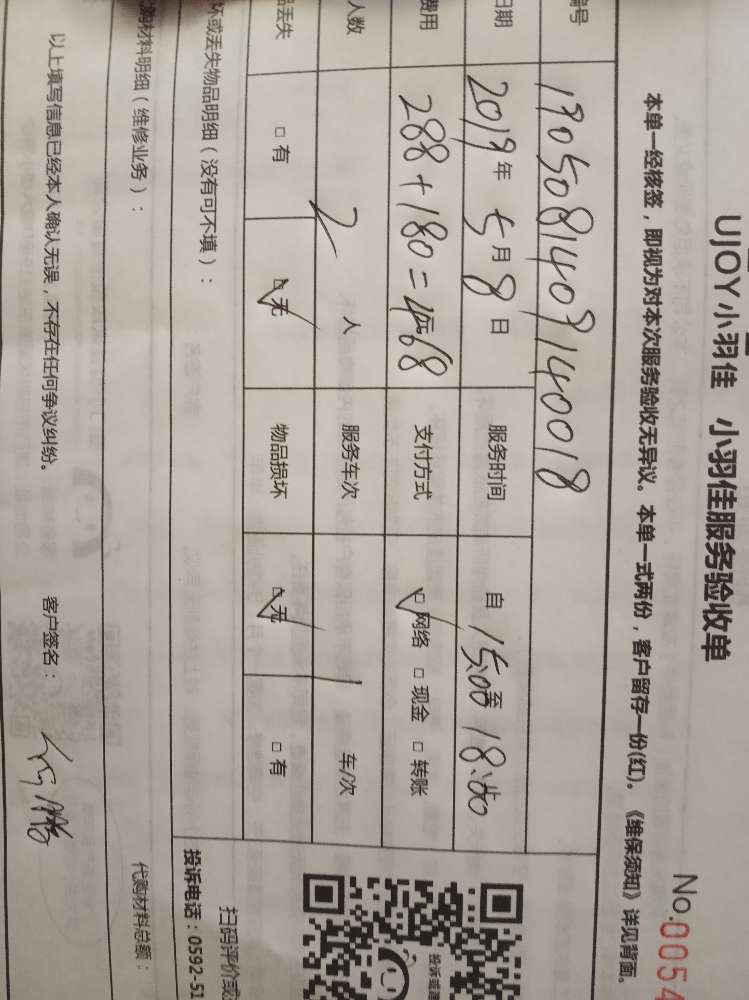 UJOY小羽佳 小羽佳服务验收单
No.0054
本单一经核签，即视为对本次服务验收无异议。本单一式两份，客户留存一份(红)。《维保须知》详见背面。
编号 1905081409140018
日期 2019年5月8日 服务时间 自 15:00 至 18:00
费用 288+180=468 元 支付方式 ☑ 网络 □ 现金 □ 转账
人数 2 人 服务车次 1 车/次
品丢失 □ 有 ☑ 无 物品损坏 ☑ 无 □ 有
坏或丢失物品明细（没有可不填）：
扫码评价或
投诉电话：0592-51
购材料明细（维修业务）：
代购材料总额：
以上填写信息已经本人确认无误，不存在任何争议纠纷。 客户签名：